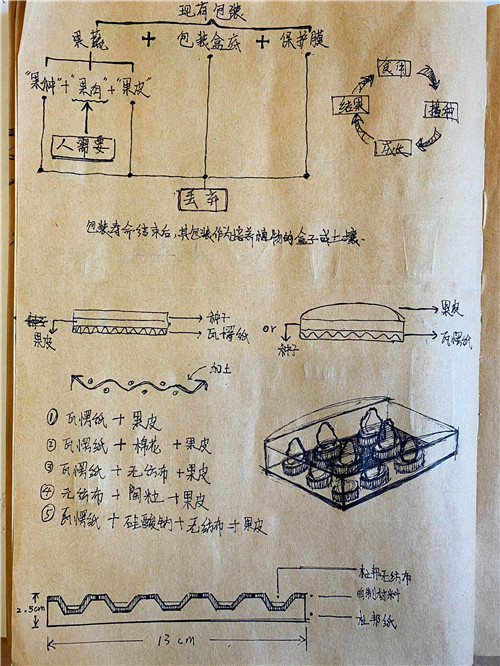 现有包装
果蔬 + 包装盒底 + 保护膜
"果种"+"果肉"+"果皮"
人需要
丢弃
食用
播种
成长
结果
包装寿命结束后,其包装作为培养植物的盒子或土壤.
种子
果皮
种子
瓦愣纸
or
种子
果皮
瓦愣纸
加土
① 瓦愣纸 + 果皮
② 瓦愣纸 + 棉花 + 果皮
③ 瓦愣纸 + 无纺布 + 果皮
④ 无纺布 + 陶粒 + 果皮
⑤ 瓦愣纸 + 硅酸钙 + 无纺布 + 果皮
2.5cm
13cm
杜邦无纺布
自制材料
杜邦纸